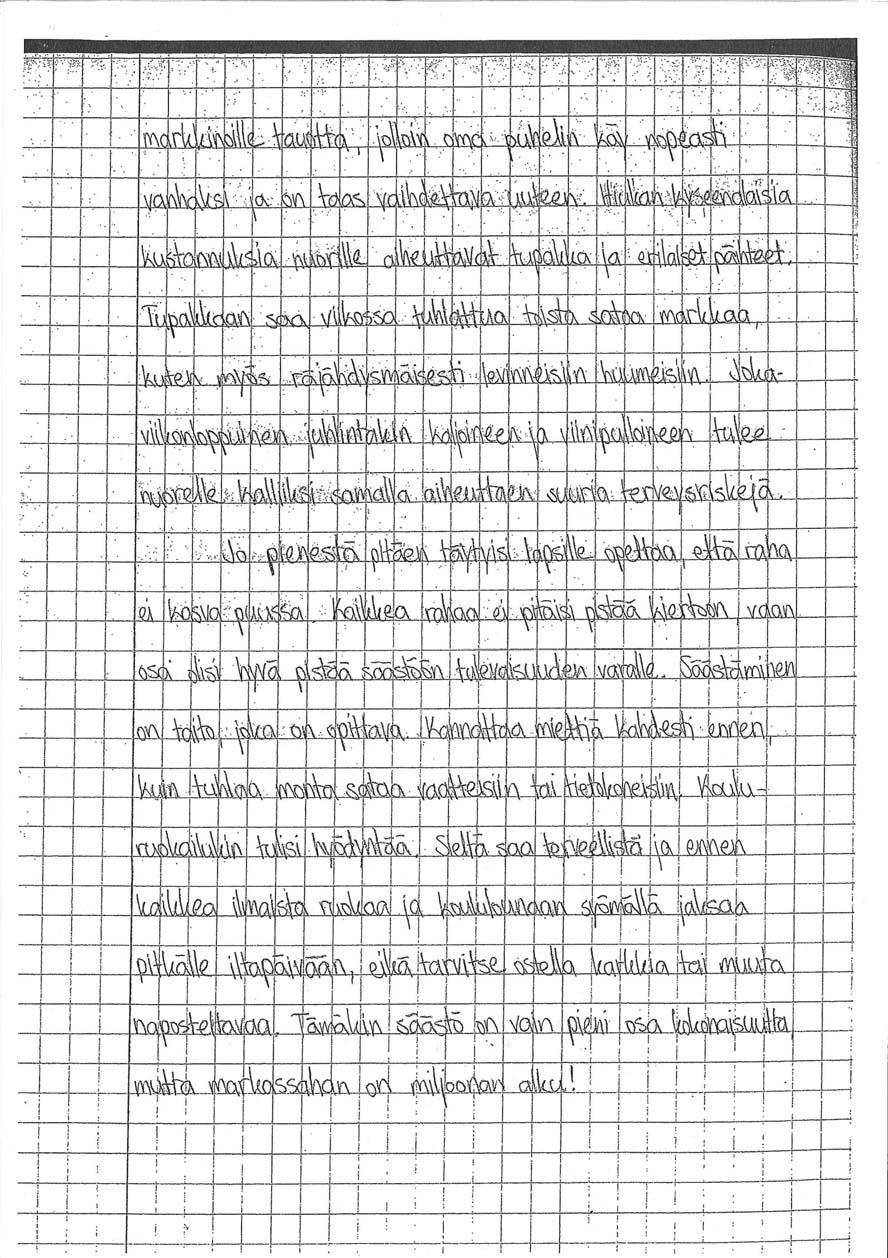 markkinoille tauotta, jolloin oma puhelin käy nopeasti
vanhaksi ja on taas vaihdettava uuteen. Hiukan kyseenalaisia
kustannuksia nuorille aiheuttavat tupakka ja erilaiset päihteet.
Tupakkaan saa viikossa tuhlattua toista sataa markkaa,
kuten myös räjähdysmäisesti levinneisiin huumeisiin. Joka-
viikonloppuinen juhlintakin kaljoineen ja viinipulloineen tulee
nuorelle kalliiksi samalla aiheuttaen suuria terveysriskejä.
Jo pienestä pitäen täytyisi lapsille opettaa, että raha
ei kasva puussa. Kaikkea rahaa ei pitäisi pistää kiertoon, vaan
osa olisi hyvä pistää säästöön tulevaisuuden varalle. Säästäminen
on taito, joka on opittava. Kannattaa miettiä kahdesti ennen,
kuin tuhlaa monta sataa vaatteisiin tai tietokoneisiin. Koulu-
ruokailukin tulisi hyödyntää. Sieltä saa terveellistä ja ennen
kaikkea ilmaista ruokaa ja koululounaan syömällä jaksaa
pitkälle iltapäivään, eikä tarvitse ostella karkkia tai muuta
naposteltavaa. Tämäkin säästö on vain pieni osa kokonaisuutta,
mutta markassahan on miljoonan alku!